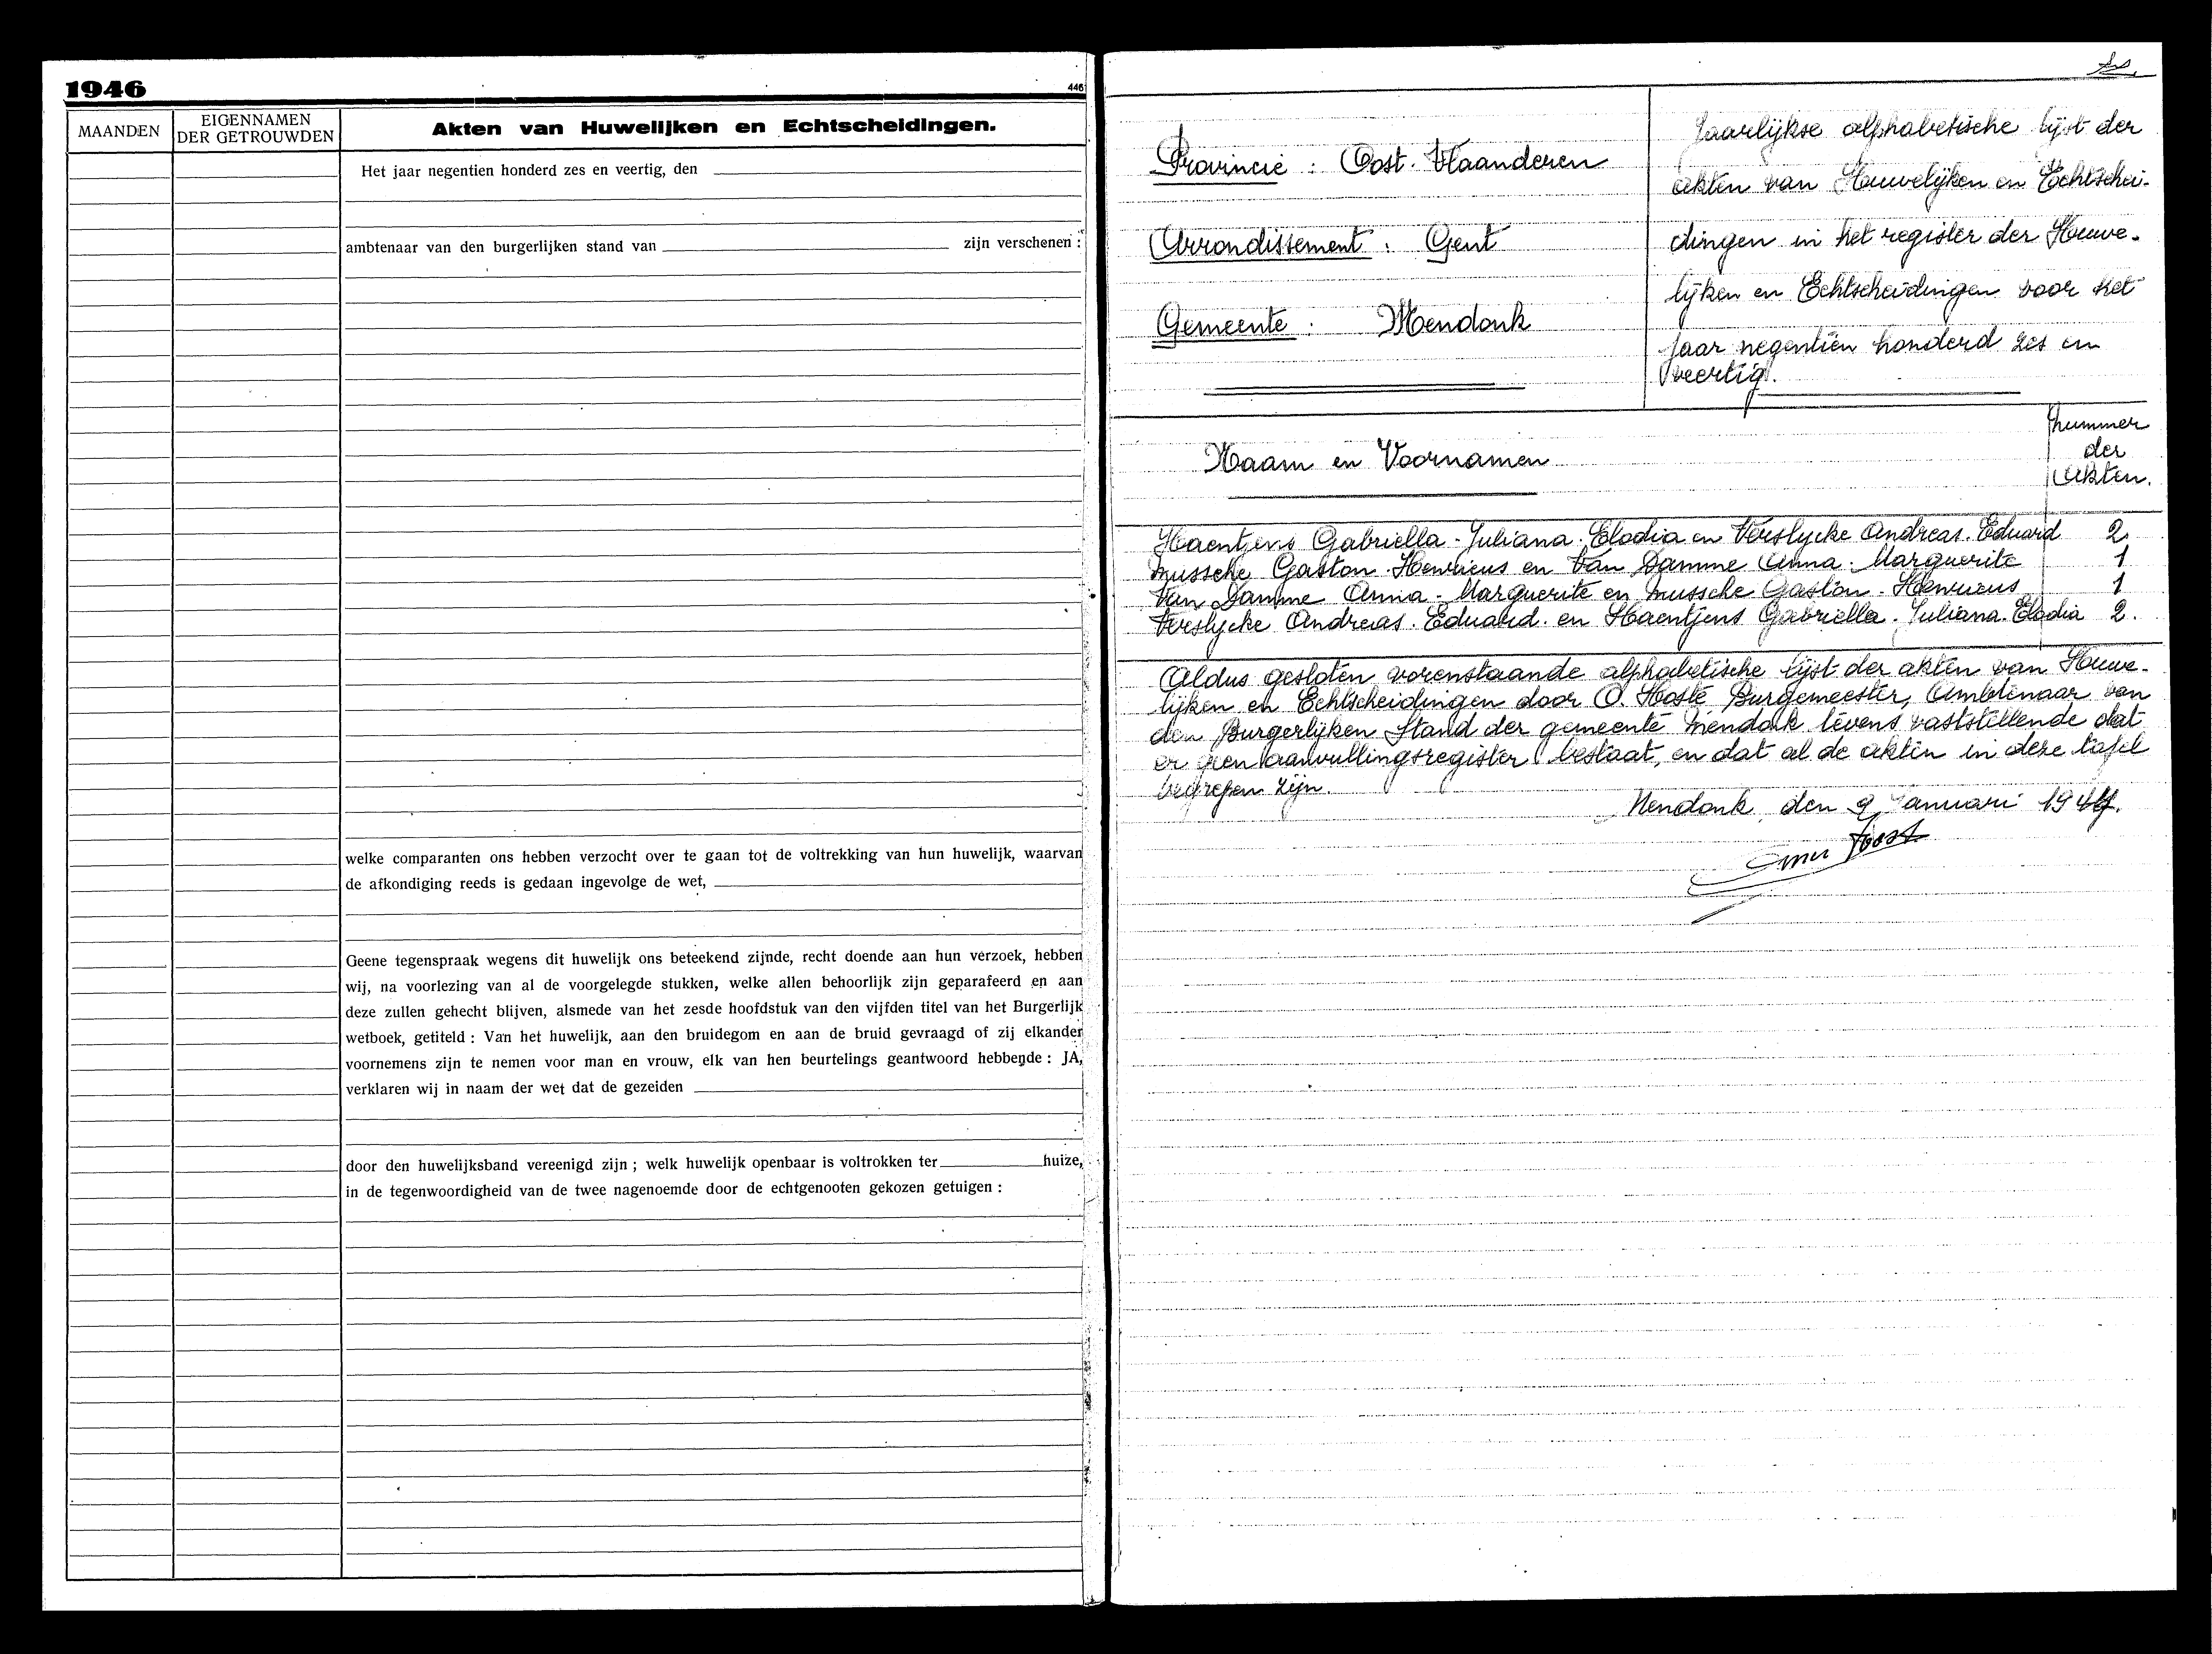 1946
446
MAANDEN
EIGENNAMEN
DER GETROUWDEN
Akten van Huwelijken en Echtscheidingen.
Het jaar negentien honderd zes en veertig, den
ambtenaar van den burgerlijken stand van zijn verschenen :
welke comparanten ons hebben verzocht over te gaan tot de voltrekking van hun huwelijk, waarvan
de afkondiging reeds is gedaan ingevolge de wet,
Geene tegenspraak wegens dit huwelijk ons beteekend zijnde, recht doende aan hun verzoek, hebben
wij, na voorlezing van al de voorgelegde stukken, welke allen behoorlijk zijn geparafeerd en aan
deze zullen gehecht blijven, alsmede van het zesde hoofdstuk van den vijfden titel van het Burgerlijk
wetboek, getiteld : Van het huwelijk, aan den bruidegom en aan de bruid gevraagd of zij elkander
voornemens zijn te nemen voor man en vrouw, elk van hen beurtelings geantwoord hebbende : JA,
verklaren wij in naam der wet dat de gezeiden
door den huwelijksband vereenigd zijn ; welk huwelijk openbaar is voltrokken ter huize,
in de tegenwoordigheid van de twee nagenoemde door de echtgenooten gekozen getuigen :
Provincie : Oost. Vlaanderen
Arrondissement : Gent
Gemeente : Mendonk
Jaarlijkse alphabetische lijst der
akten van Huwelijken en Echtschei-
dingen in het register der Huwe-
lijken en Echtscheidingen voor het
jaar negentien honderd zes en
veertig.
Naam en Voornamen
Nummer
der
Akten.
Haentjens Gabriella - Juliana. Elodia en Verslycke Andreas. Eduard 2.
Mussche Gaston. Henricus en Van Damme Anna. Marguerite 1
Van Damme Anna - Marguerite en Mussche Gaston. Henricus 1
Verslycke Andreas. Eduard. en Haentjens Gabriella. Juliana. Elodia 2.
Aldus gesloten vorenstaande alphabetische lijst der akten van Huwe-
lijken en Echtscheidingen door O. Hoste Burgemeester, Ambtenaar van
den Burgerlijken Stand der gemeente Mendonk tevens vaststellende dat
er geen aanvullingsregister bestaat, en dat al de akten in deze tafel
begrepen zijn.
Mendonk, den 9 Januari 1947.